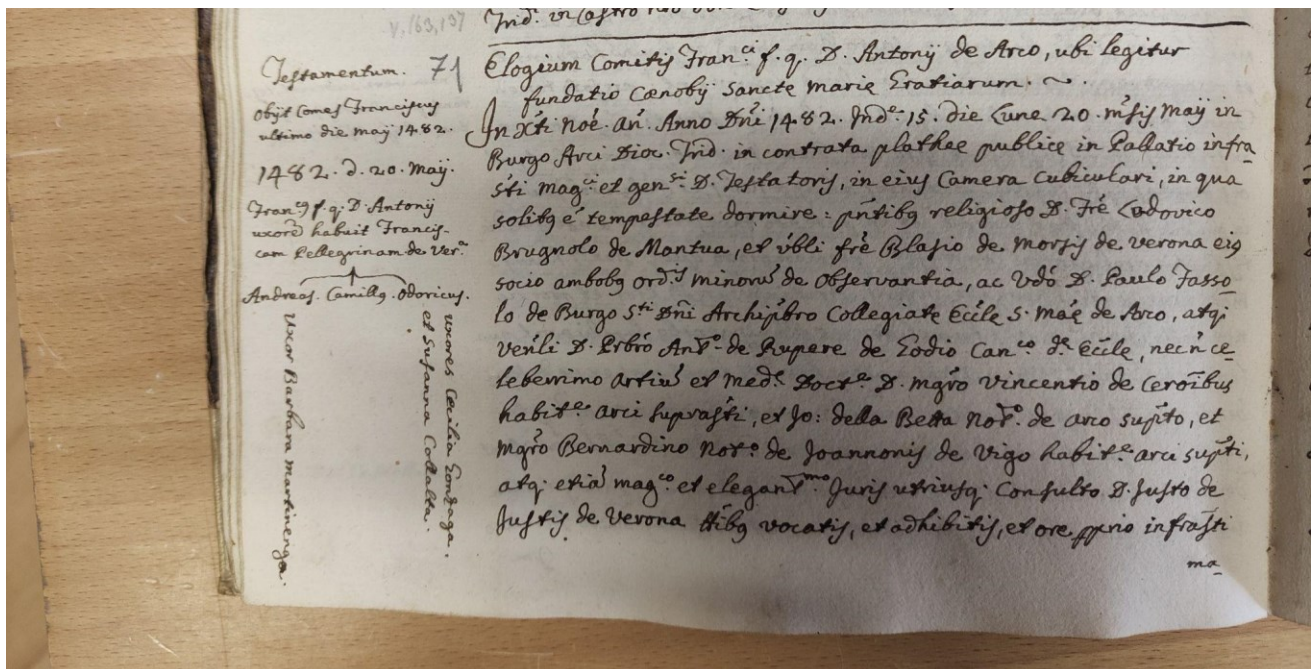 v. 163, 137
Trid. in Castro
Testamentum. 71
Obijt Comes Franciscus
ultimo die maij 1482.
1482. d. 20. Maij.
Franc9 f. q. D. Antonij
uxorē habuit Francis-
cam Pellegrinam de Ver.a
Andreas. Camill9. Odoricus.
Uxor Barbara martinenga.
uxores Cecilia Gonzaga.
et Susanna Collalta.
Elogium Comitis Fran.ci f. q. D. Antonij de Arco, ubi legitur
fundatio Cænobij Sancte Marie Gratiarum. ~
In Xti Noe. an. Anno Dñi 1482. Ind.e 15. die Lune 20. m̃sis Maij in
Burgo Arci Dioc. Trid. in contrata plathee publice in Pallatio infra_
sti mag.ci et gen.si D. Testatoris, in eius Camera Cubiculari, in qua
solitus e tempestate dormire: pñtibus religioso D. Fre Lodovico
Brugnolo de Mantua, et vbli frē Blasio de Morsis de verona ei9
socio ambobus ord.is minorū de Observantia, ac Vdo D. Paulo Tasso_
lo de Burgo S.ti Dñi Archipbro Collegiate Ecile S. Mae de Arco, atq;
venli D. Prbro Ant.o de Rupere de Lodio Can.co d.e Ecile, necñ ce_
leberrimo artiū et med.e Doct.e D. mgro Vincentio de Ceroibus
habit.e Arci suprasti, et Jo: della Betta Not.o de arco supto, et
mgro Bernardino Not.o de Joannonis de Vigo habit.e arci supti,
atq; etiā mag.co et elegant.mo Juris utriusq; Consulto D. Justo de
Justis de Verona ttibus vocatis, et adhibitis, et ore pprio infrasti
ma_